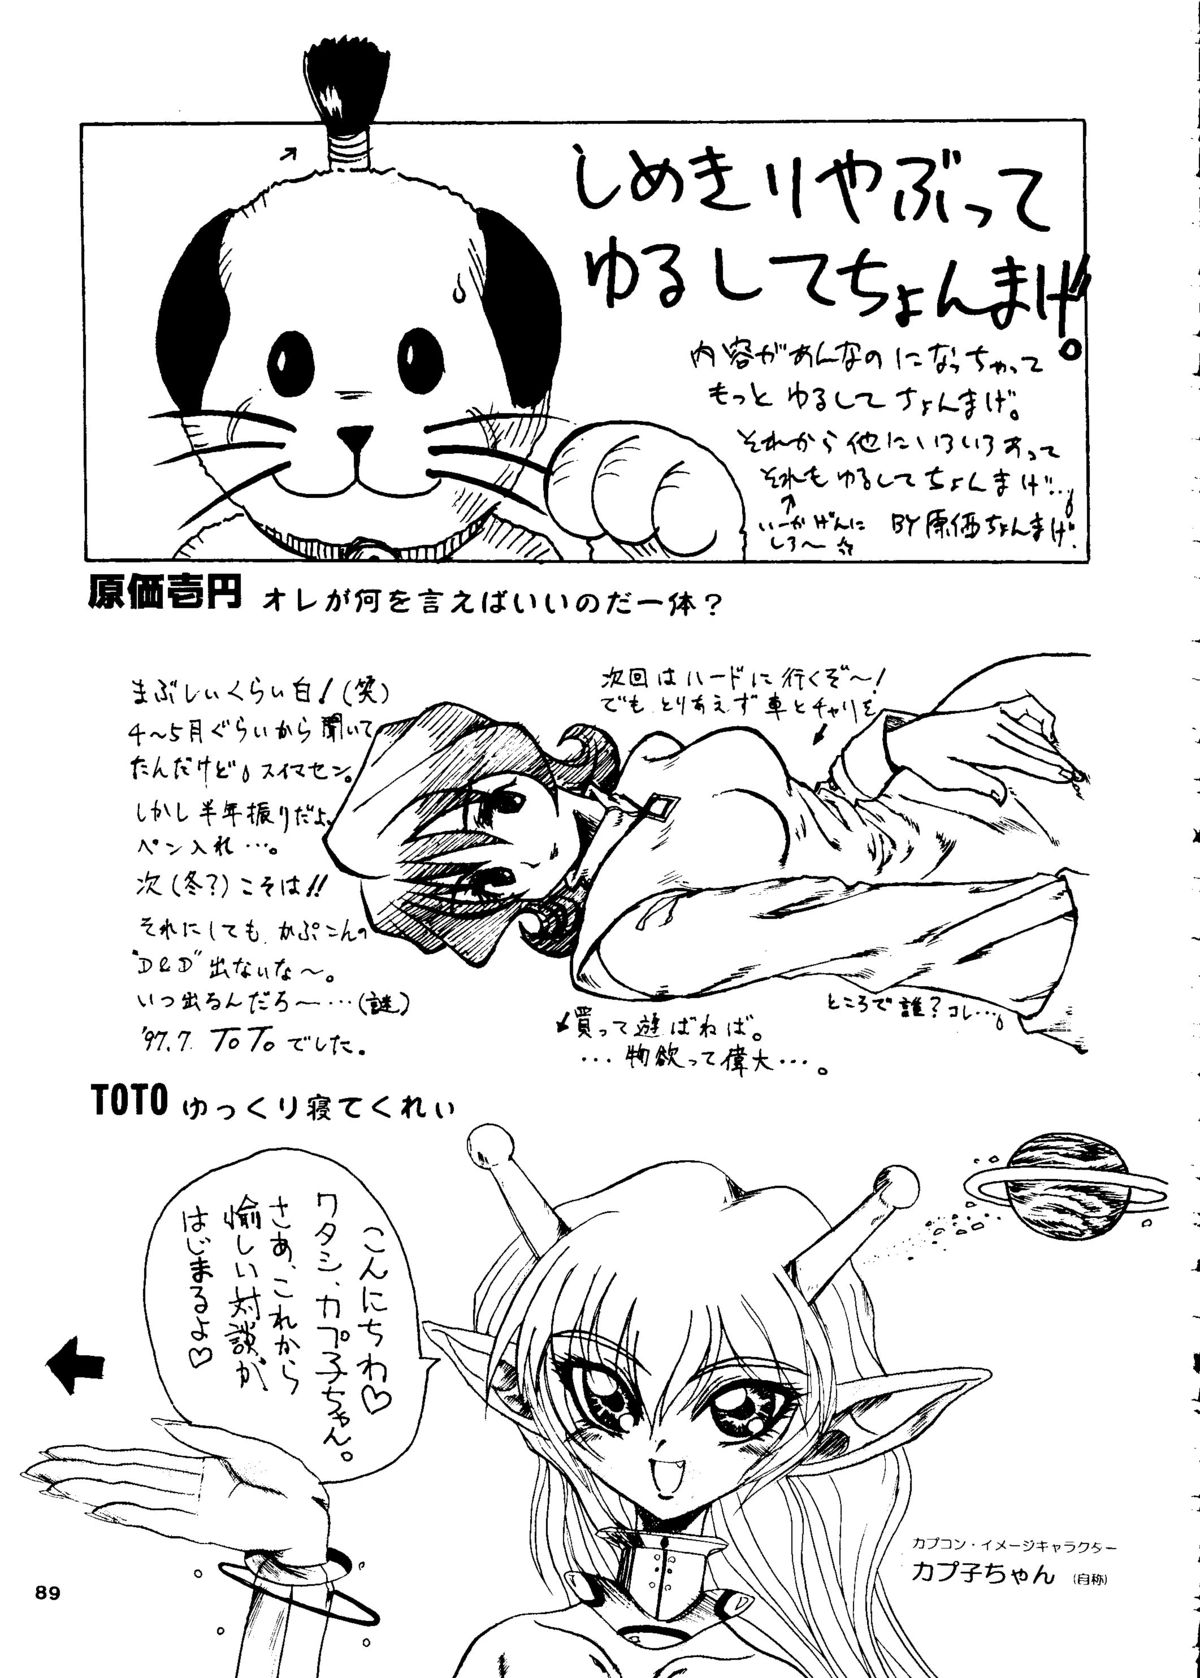 しめきりやぶって
ゆるしてちょんまげ。
内容があんなのになっちゃって
もっとゆるしてちょんまげ。
それから他にいろいろあって
それもゆるしてちょんまげ…。
いーかげんに
しろ～☆
BY 原価ちょんまげ.
原価壱円 オレが何を言えばいいのだ一体？
まぶしいくらい白！(笑)
4～5月ぐらいから聞いて
たんだけど。スイマセン。
しかし半年振りだよ、
ペン入れ…。
次(冬?)こそは!!
それにしても、かぷこんの
"D&D"出ないな～。
いつ出るんだろ～…(謎)
'97.7. TOTOでした。
次回はハードに行くぞ～!
でもとりあえず車とチャリを
買って遊ばねば。
…物欲って偉大…。
ところで誰?コレ…。
TOTO ゆっくり寝てくれぃ
こんにちわ♡
ワタシ、カプ子ちゃん。
さあ、これから
愉しい対談が、
はじまるよ♡
カプコン・イメージキャラクター
カプ子ちゃん (自称)
89